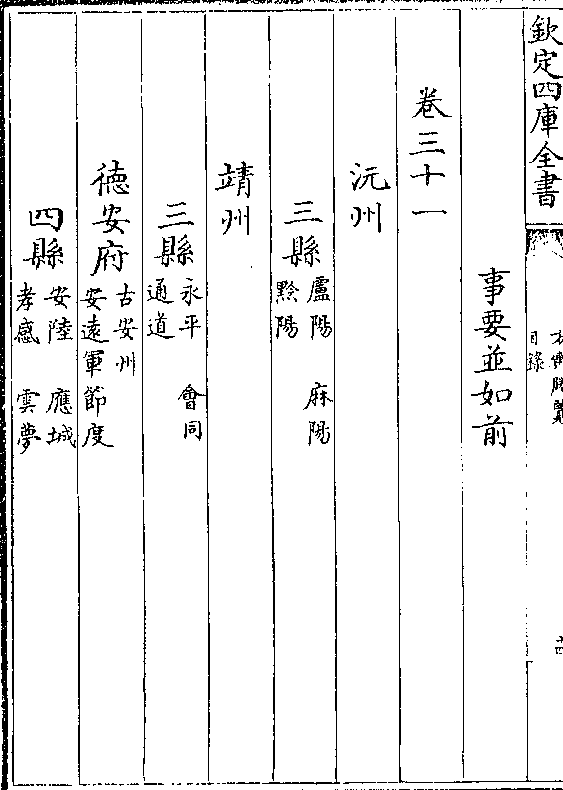 欽定四庫全書
方輿勝覽
目錄
事要並如前
卷三十一
沅州
三縣 盧陽 麻陽
黔陽
靖州
三縣 永平 會同
通道
德安府 古安州
安遠軍節度
四縣 安陸 應城
孝感 雲夢